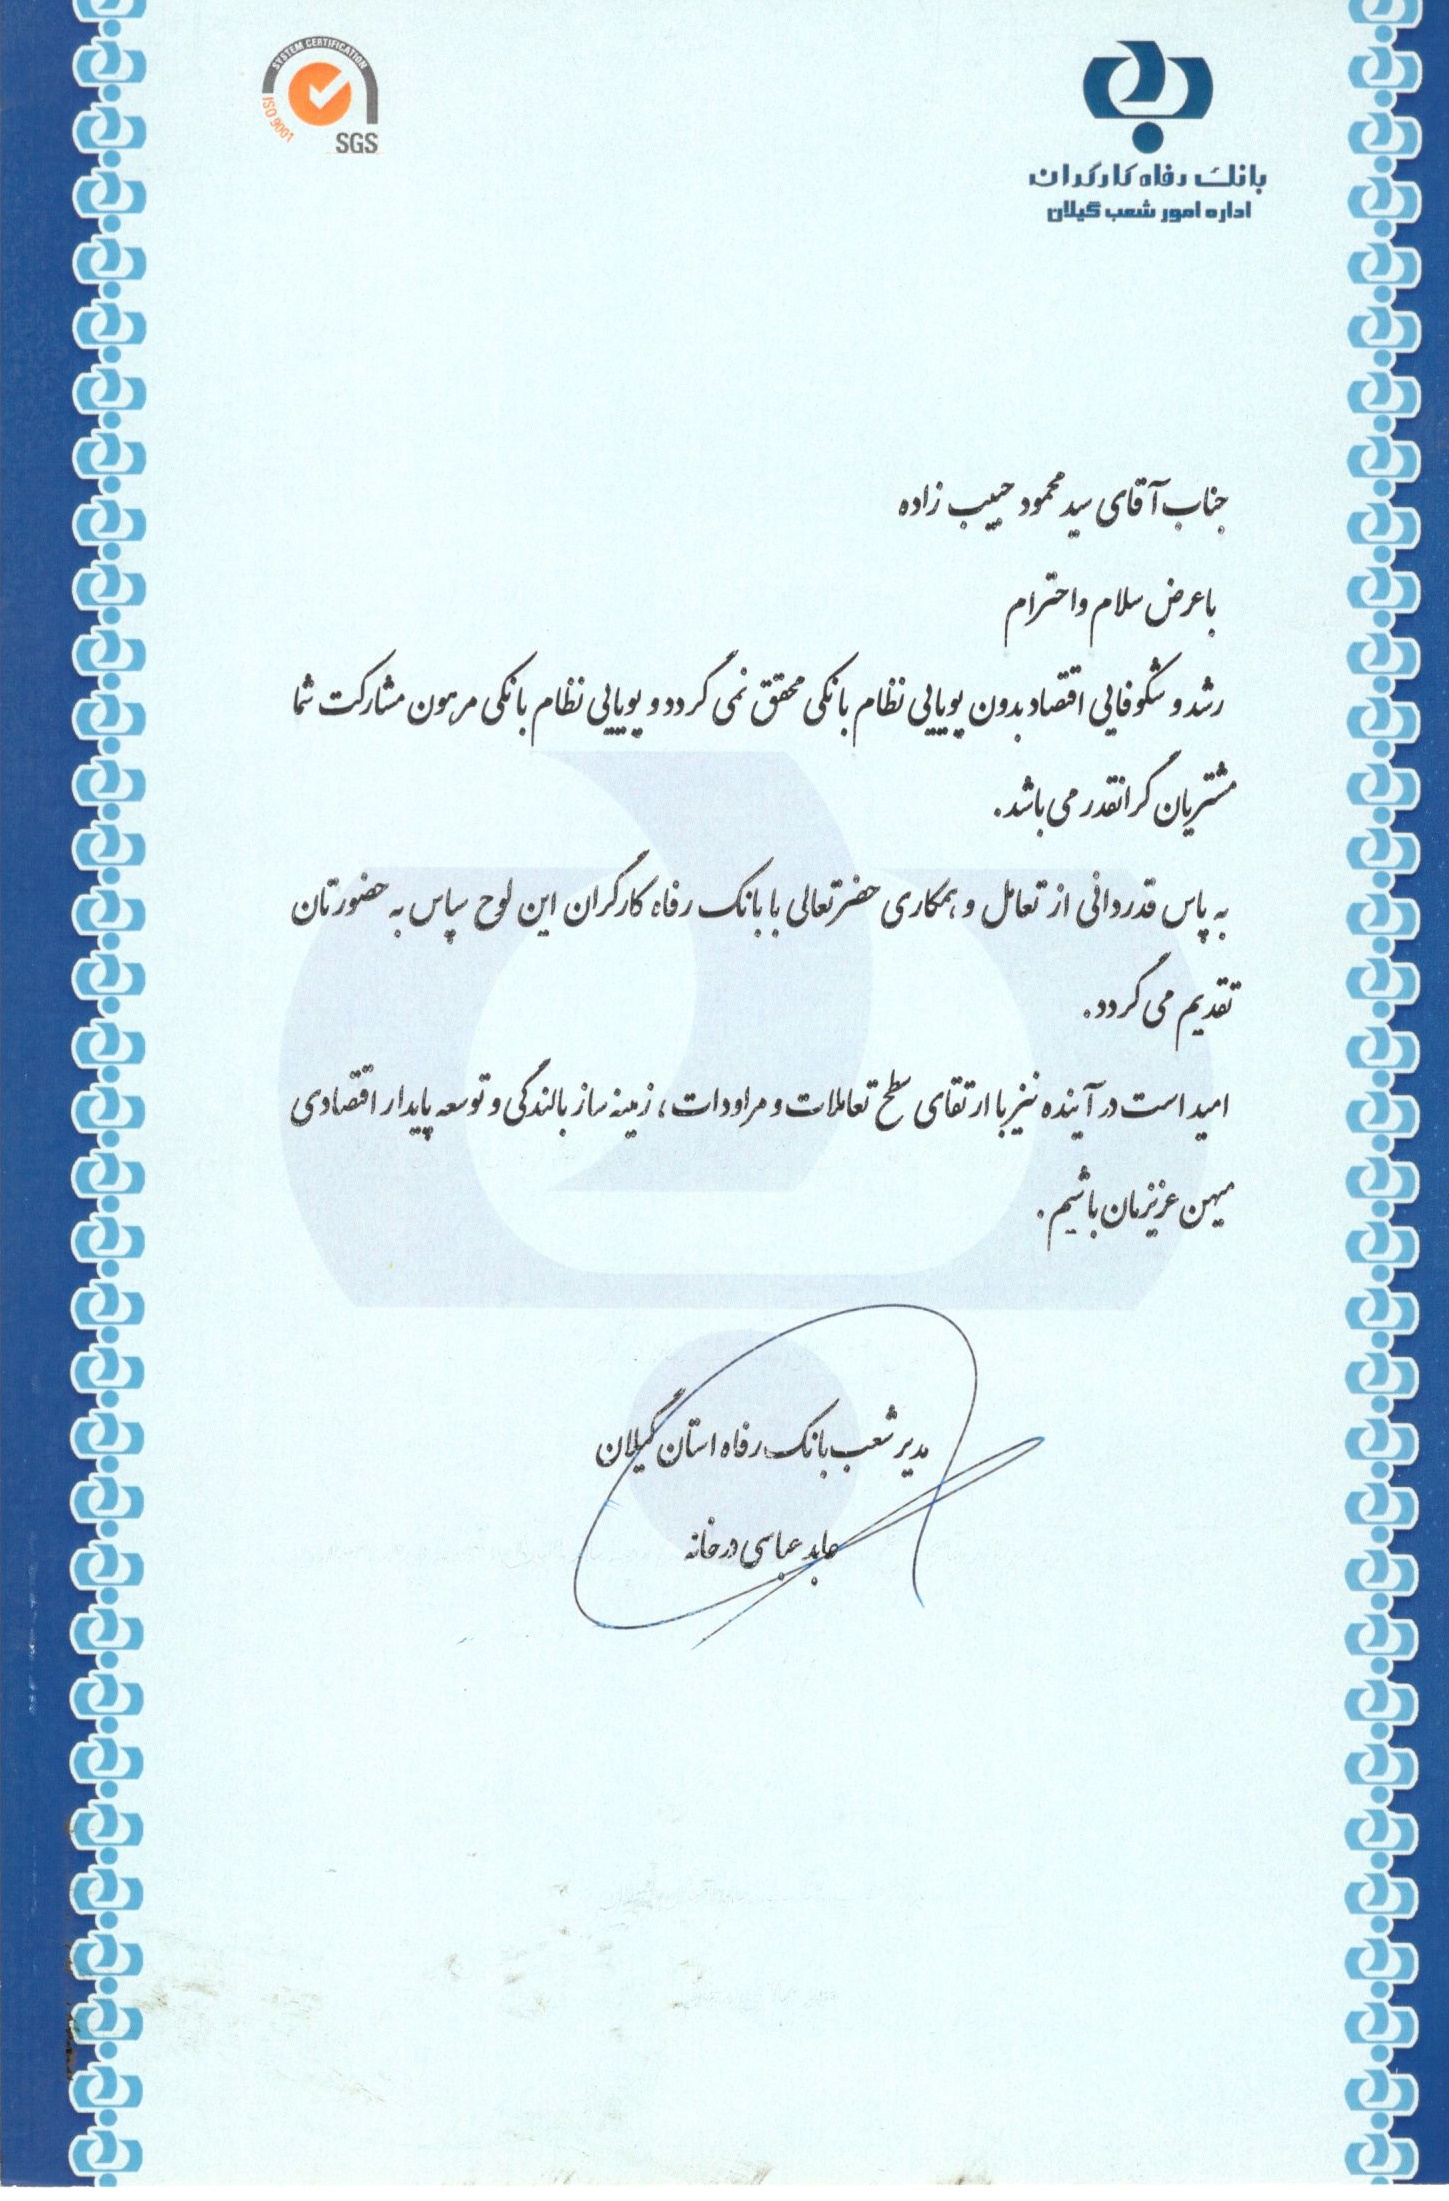 SYSTEM CERTIFICATION
ISO 9001
SGS
بانک رفاه کارگران
اداره امور شعب گیلان
جناب آقای سید محمود حبیب زاده
با عرض سلام و احترام
رشد و شکوفایی اقتصاد بدون پویایی نظام بانکی محقق نمی گردد و پویایی نظام بانکی مرهون مشارکت شما
مشتریان گرانقدر می باشد.
به پاس قدردانی از تعامل و همکاری حضرتعالی با بانک رفاه کارگران این لوح سپاس به حضورتان
تقدیم می گردد.
امید است در آینده نیز با ارتقای سطح تعاملات و مراودات، زمینه ساز بالندگی و توسعه پایدار اقتصادی
میهن عزیزمان باشیم.
مدیر شعب بانک رفاه استان گیلان
عابد عباسی درخانه